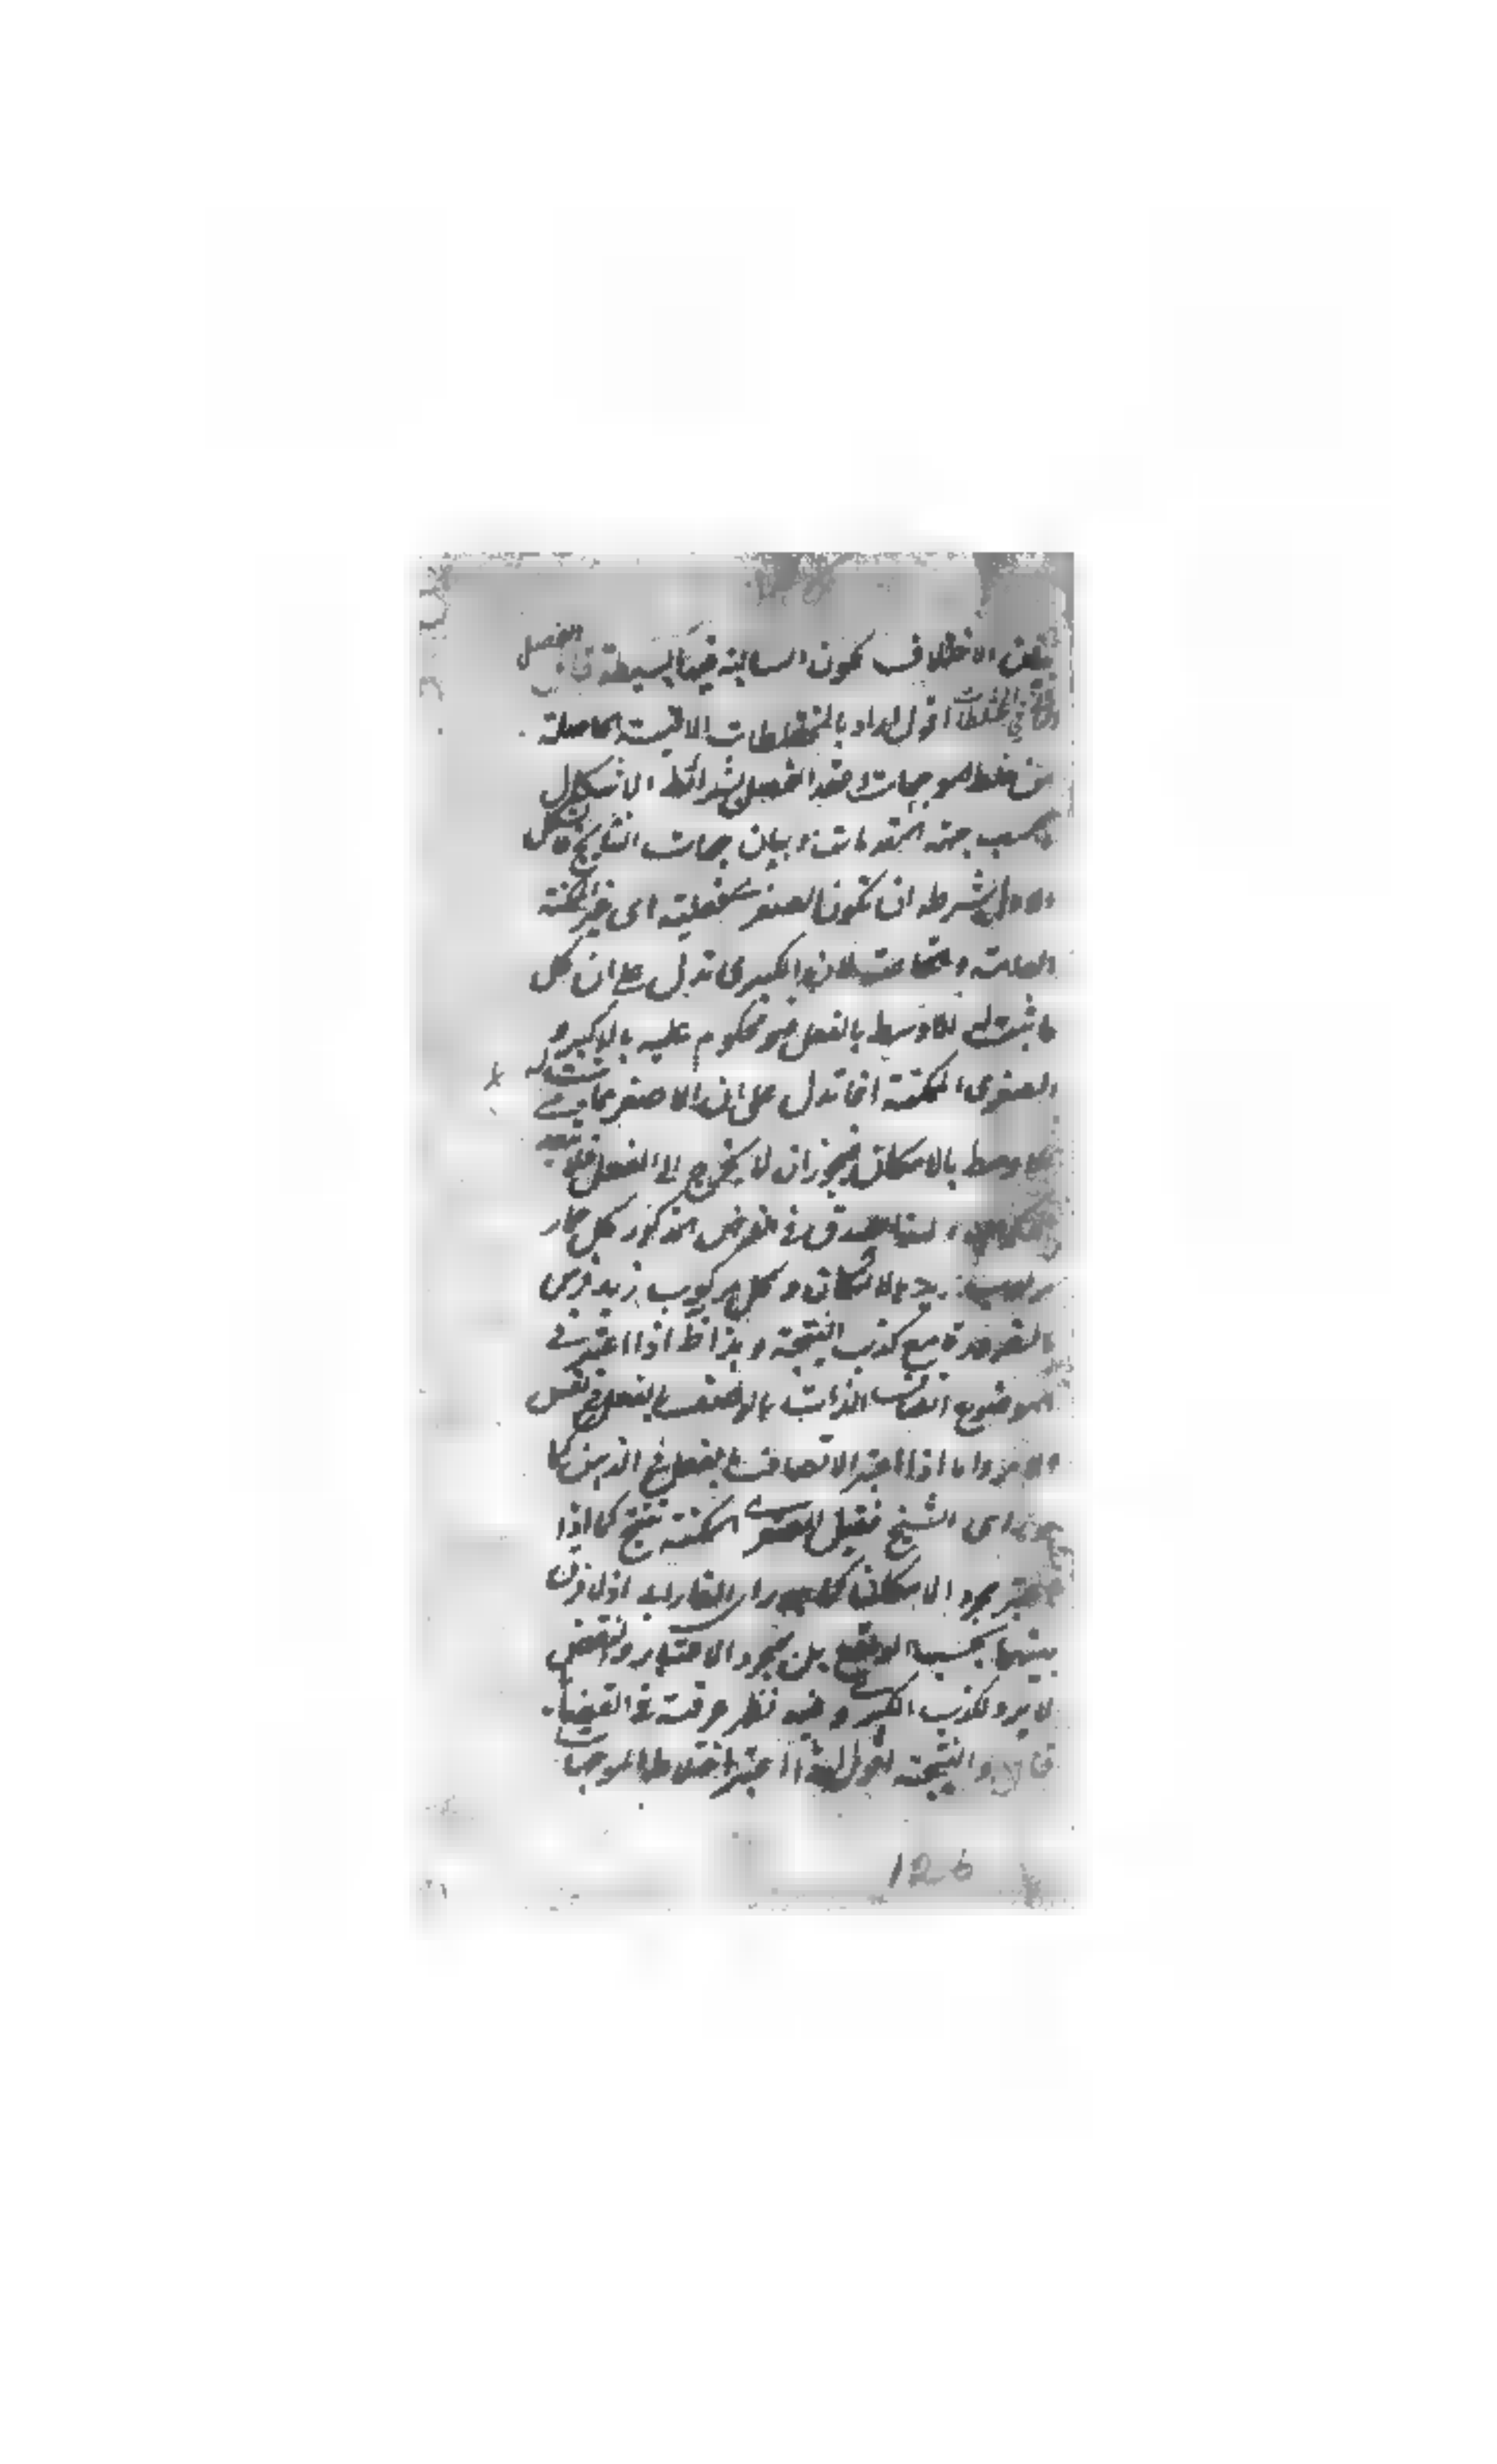 الاختلاف كون السالبة فيها بسيطة قال الفصل
في المختلطات اقول المراد بالمختلطات الاقيسة الحاصلة
من خلط الموجهات وعقد الفصل لشرائط الاشكال
بحسب جهة المقدمات وبيان جهات النتايج فالشكل
الاول شرطه ان تكون الصغرى فعلية اى غير الممكنة
العامة والخاصة لان الكبرى تدل على ان كل
ما ثبت له الاوسط بالفعل فهو محكوم عليه بالاكبر و
الصغرى الممكنة انما تدل على ان الاصغر مما ثبت له
الاوسط بالامكان فيجوز ان لا يخرج الى الفعل فلا
يصدق فى الفرض المذكور كل حمار
مركوب زيد بالامكان وكل مركوب زيد فرس
بالضرورة مع كذب النتيجة وهذا انما اذا اعتبر فى
الموضوع اتصاف الذات بالوصف بالفعل فى نفس
الامر واما اذا اعتبر الاتصاف بالفعل فى الذهن كما
هو راى الشيخ فقيل الصغرى الممكنة تنتج كما اذا
اعتبر مجرد الامكان كما هو راى الفارابى اذ لا فرق
بينهما بحسب الواقع بل بمجرد الاعتبار والنقض
لا يرد لكذب الكبرى وفيه نظر عرفته فى القضايا
قال والنتيجة اقول اذا اعتبر اختلاط الموجهات
126